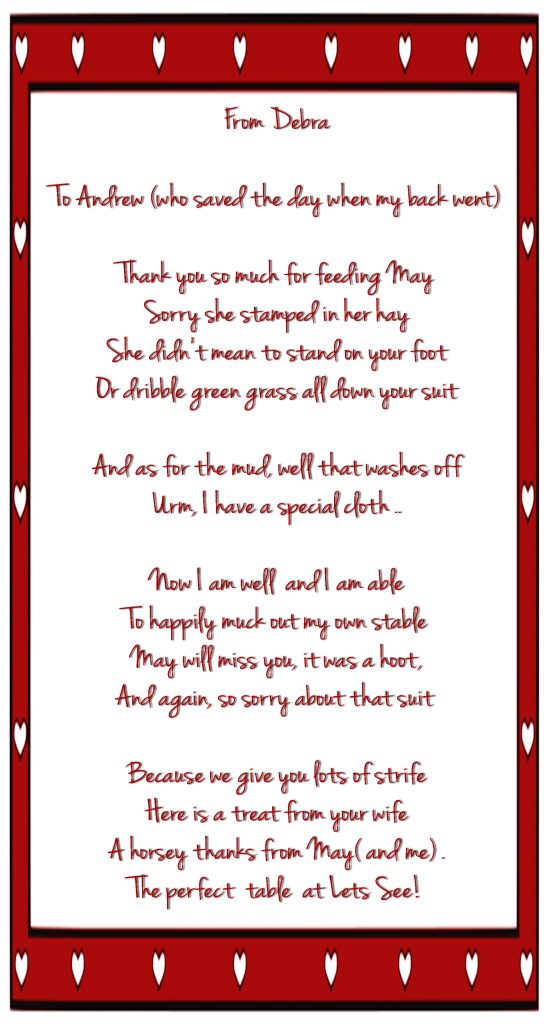 From Debra
To Andrew (who saved the day when my back went)
Thank you so much for feeding May
Sorry she stamped in her hay
She didn't mean to stand on your foot
Or dribble green grass all down your suit
And as for the mud, well that washes off
Urm, I have a special cloth ..
Now I am well and I am able
To happily muck out my own stable
May will miss you, it was a hoot,
And again, so sorry about that suit
Because we give you lots of strife
Here is a treat from your wife
A horsey thanks from May( and me) .
The perfect table at Lets See!